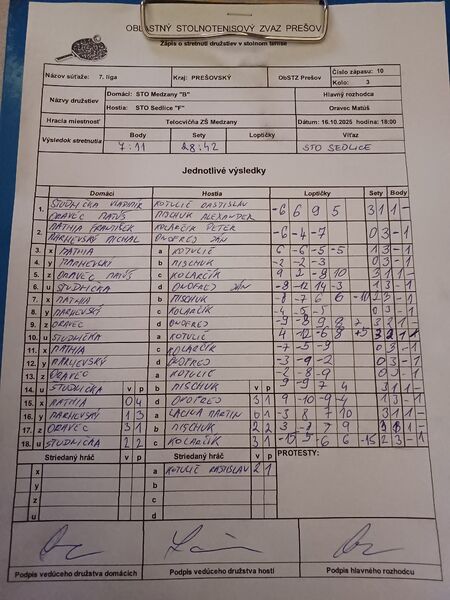 OBLASTNÝ STOLNOTENISOVÝ ZVÄZ PREŠOV
Zápis o stretnutí družstiev v stolnom tenise
Názov súťaže: 7. liga Kraj: PREŠOVSKÝ ObSTZ Prešov Číslo zápasu: 10
Kolo: 3
Názvy družstiev Domáci: STO Medzany "B" Hlavný rozhodca
Hostia: STO Sedlice "F" Oravec Matúš
Hracia miestnosť Telocvičňa ZŠ Medzany Dátum: 16.10.2025 hodina: 18:00
Výsledok stretnutia Body Sety Loptičky Víťaz
7:11 28:42 STO SEDLICE
Jednotlivé výsledky
Domáci Hostia Loptičky Sety Body
1. STUDNIČKA VLADIMÍR KOTULIČ RASTISLAV -6 6 9 5 3 1 1 -
ORAVEC MATÚŠ MISCHUK ALEXANDER
2. MATHIA FRANTIŠEK KOLARČÍK PETER -6 -4 -7 0 3 - 1
MARHEVSKÝ MICHAL ONOFREJ JÁN
3. x MATHIA a KOTULIČ 6 -6 -5 -5 1 3 - 1
4. y MARHEVSKÝ b MISCHUK -2 -2 -3 0 3 - 1
5. z ORAVEC MATÚŠ c KOLARČÍK 9 2 -9 10 3 1 1 -
6. u STUDNIČKA d ONOFREJ JÁN -8 -12 14 -3 1 3 - 1
7. x MATHIA b MISCHUK -8 -7 6 6 -10 2 3 - 1
8. y MARHEVSKÝ c KOLARČÍK -4 -5 -5 0 3 - 1
9. z ORAVEC d ONOFREJ
10. u STUDNIČKA a KOTULIČ
11. x MATHIA c KOLARČÍK -7 -5 -9 0 3 - 1
12. y MARHEVSKÝ d ONOFREJ -3 -9 -2 0 3 - 1
13. z ORAVEC a KOTULIČ -2 -8 -9 0 3 - 1
14. u STUDNIČKA v p b MISCHUK v p -9 9 7 4 3 1 1 -
15. x MATHIA 0 4 d ONOFREJ 3 1 9 -10 -9 -4 1 3 - 1
16. y MARHEVSKÝ 1 3 a LACKO MARTIN 0 1 -3 8 7 10 3 1 1 -
17. z ORAVEC 3 1 b MISCHUK 2 2
18. u STUDNIČKA 2 2 c KOLARČÍK 3 1
Striedaný hráč v p Striedaný hráč v p PROTESTY:
x a KOTULIČ RASTISLAV 2 1
y b
z c
u d
Podpis vedúceho družstva domácich Podpis vedúceho družstva hostí Podpis hlavného rozhodcu